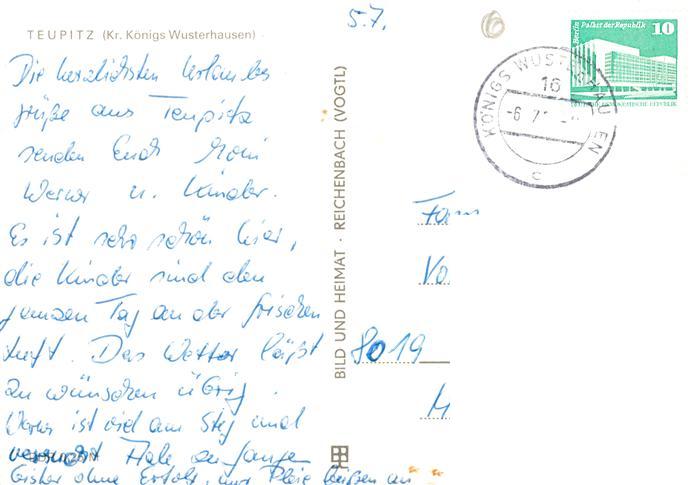 5.7.
TEUPITZ (Kr. Königs Wusterhausen)
Die herzlichsten Urlaubs
grüße aus Teupitz
senden Euch Roni
Werner u. Kinder.
Es ist sehr schön hier,
die Kinder sind den
ganzen Tag an der frischen
Luft. Das Wetter läßt
zu wünschen übrig.
Werner ist viel am Steg und
versucht Aale zu fangen
bisher ohne Erfolg, nur Pleie beißen an
BILD UND HEIMAT · REICHENBACH (VOGTL)
Berlin Palast der Republik 10
DEUTSCHE DEMOKRATISCHE REPUBLIK
KÖNIGS WUSTERHAUSEN
16
-6.7.
c
Fam
Vo
8019